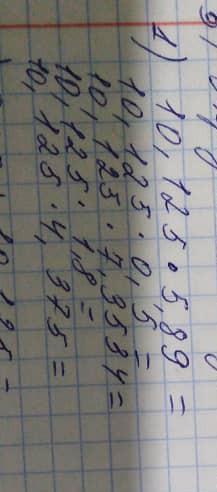 1) 10,125 · 5,89 =
10,125 · 0,5 =
10,125 · 7,3534 =
10,125 · 1,8 =
10,125 · 4,375 =